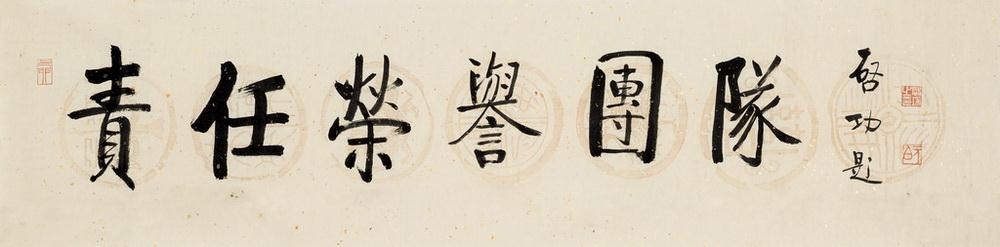 責任榮譽團隊
啓功題